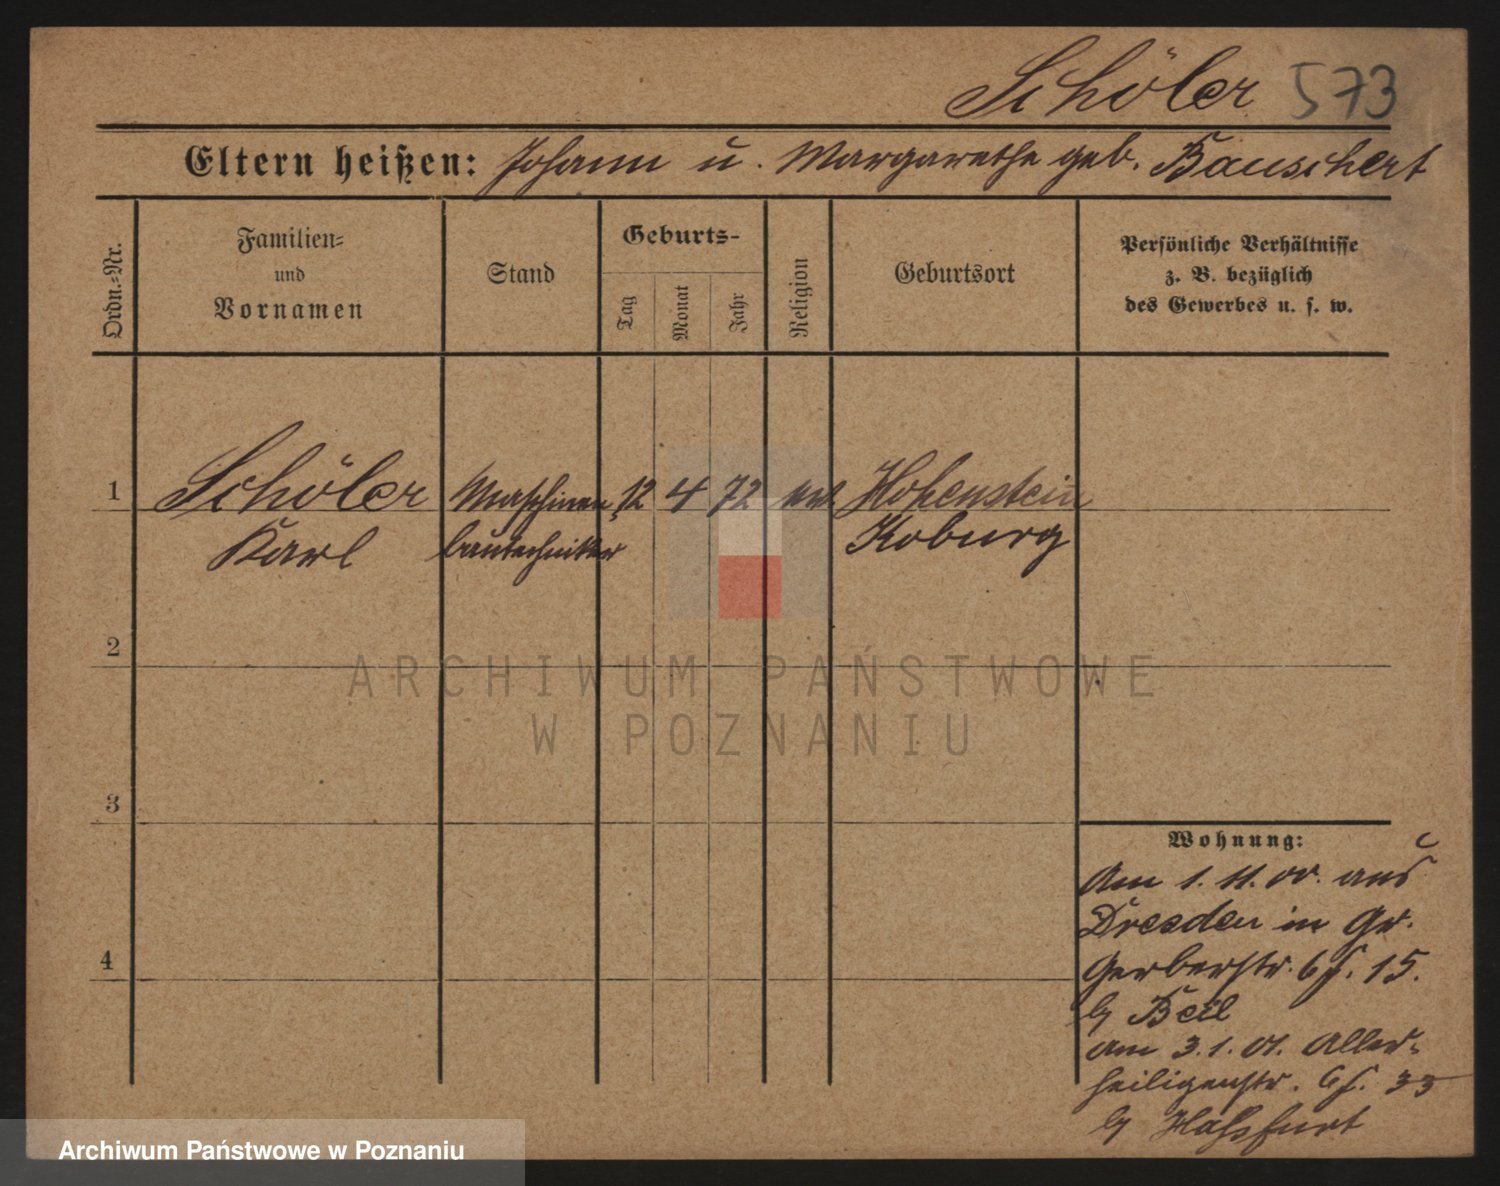 Schöler 573
Eltern heißen: Johann u. Margarethe geb. Bauschert
Ordn.-Nr.
Familien-
und
Vornamen
Stand
Geburts-
Tag
Monat
Jahr
Religion
Geburtsort
Persönliche Verhältnisse
z. B. bezüglich
des Gewerbes u. s. w.
1 Schöler Maschinen 12 4 72 Hohenstein
Karl bautechniker Koburg
2
ARCHIWUM PAŃSTWOWE
W POZNANIU
3
Wohnung:
Am 1. 11. 00. aus
Dresden in Gr.
4
Gerberstr. 15.
Beil
Am 3. 1. 01. Aller-
heiligenstr. 33
Hassfurt
Archiwum Państwowe w Poznaniu